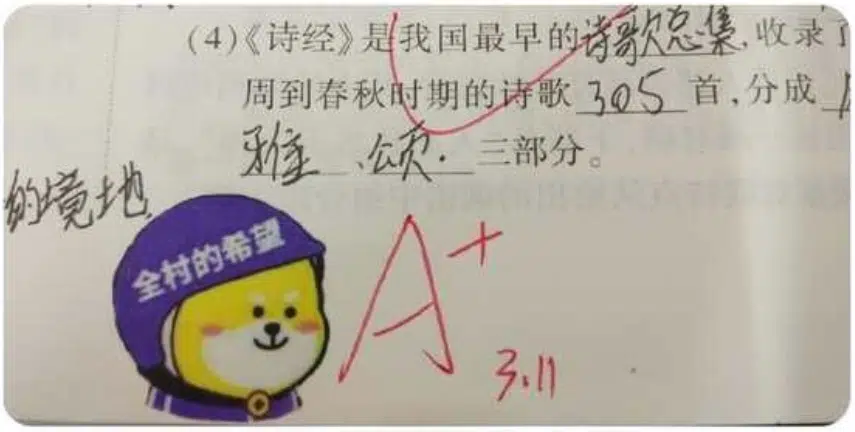 (4)《诗经》是我国最早的诗歌总集,收录了
周到春秋时期的诗歌 305 首,分成
雅、颂. 三部分。
的境地
全村的希望
A+
3.11